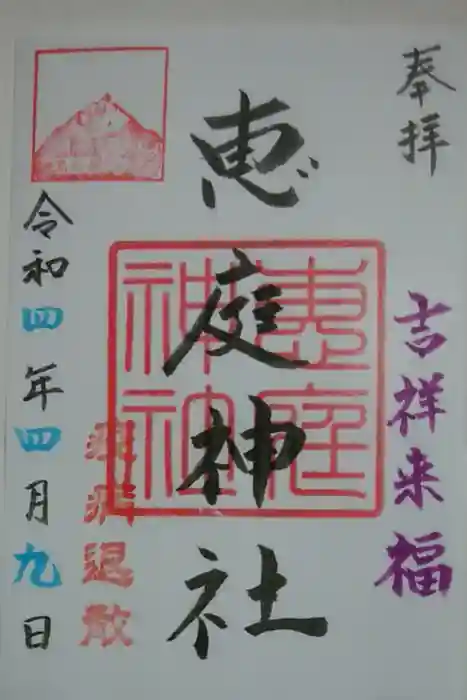 奉拝
吉祥来福
恵庭神社
恵庭
神社
疫病退散
令和四年四月九日